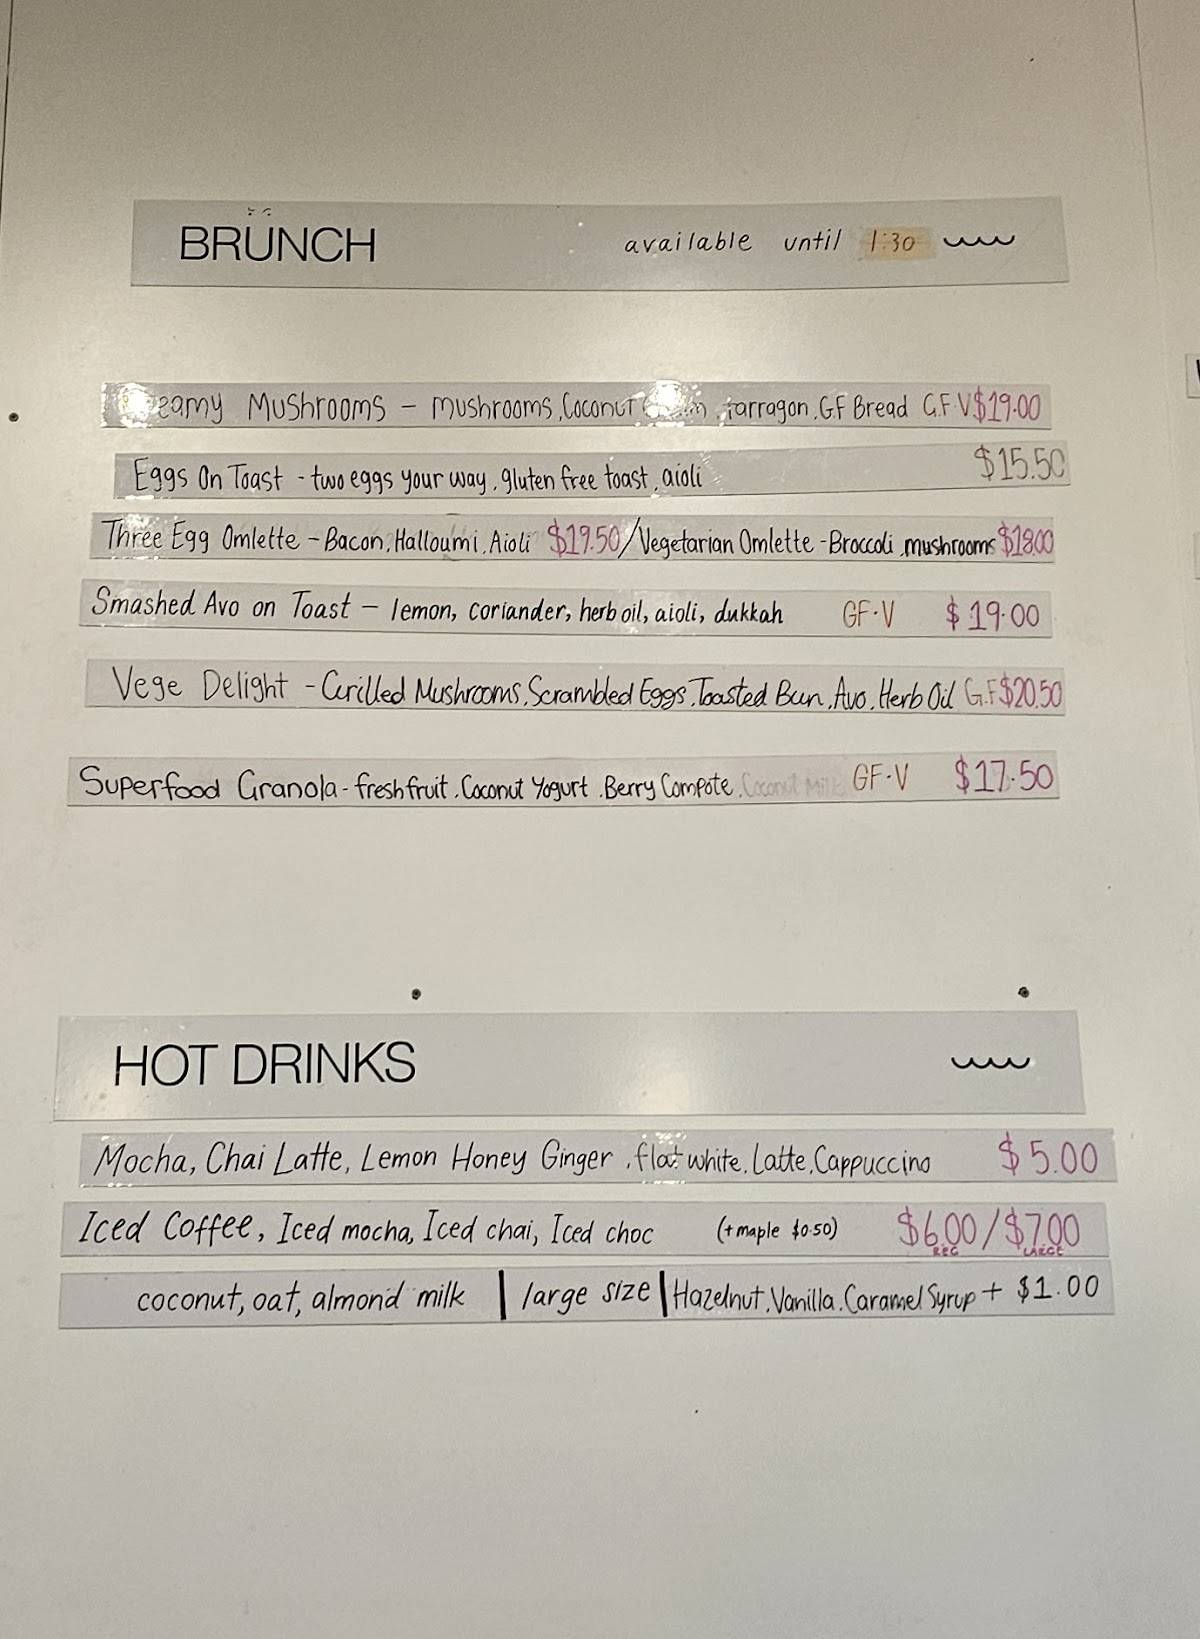 BRUNCH available until 1:30
Creamy Mushrooms - Mushrooms, Coconut Cream, Tarragon, GF Bread G.F.V $19.00
Eggs On Toast - two eggs your way, gluten free toast, aioli $15.50
Three Egg Omlette - Bacon, Halloumi, Aioli $19.50/Vegetarian Omlette - Broccoli, mushrooms $18.00
Smashed Avo on Toast - lemon, coriander, herb oil, aioli, dukkah GF·V $19.00
Vege Delight - Grilled Mushrooms, Scrambled Eggs, Toasted Bun, Avo, Herb Oil G.F $20.50
Superfood Granola - fresh fruit, Coconut Yogurt, Berry Compote, Coconut Milk GF·V $17.50
HOT DRINKS
Mocha, Chai Latte, Lemon Honey Ginger, flat white, Latte, Cappuccino $5.00
Iced Coffee, Iced mocha, Iced chai, Iced choc (+maple $0.50) $6.00/$7.00
REG LARGE
coconut, oat, almond milk | large size | Hazelnut, Vanilla, Caramel Syrup + $1.00